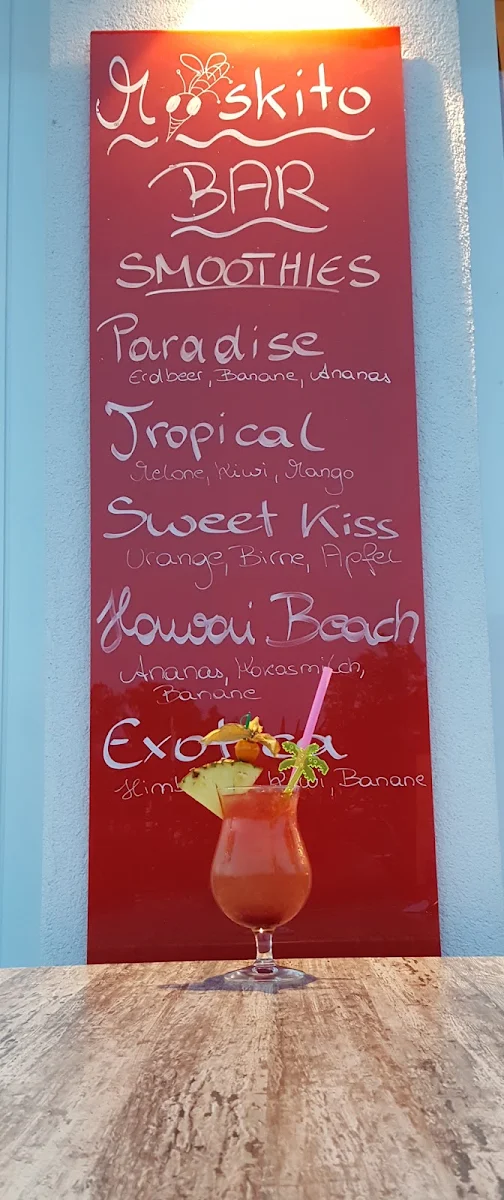 Moskito
BAR
SMOOTHIES
Paradise
Erdbeer, Banane, Ananas
Tropical
Melone, Kiwi, Mango
Sweet Kiss
Orange, Birne, Apfel
Hawaii Beach
Ananas, Kokosmilch,
Banane
Exotica
Kiwi, Banane